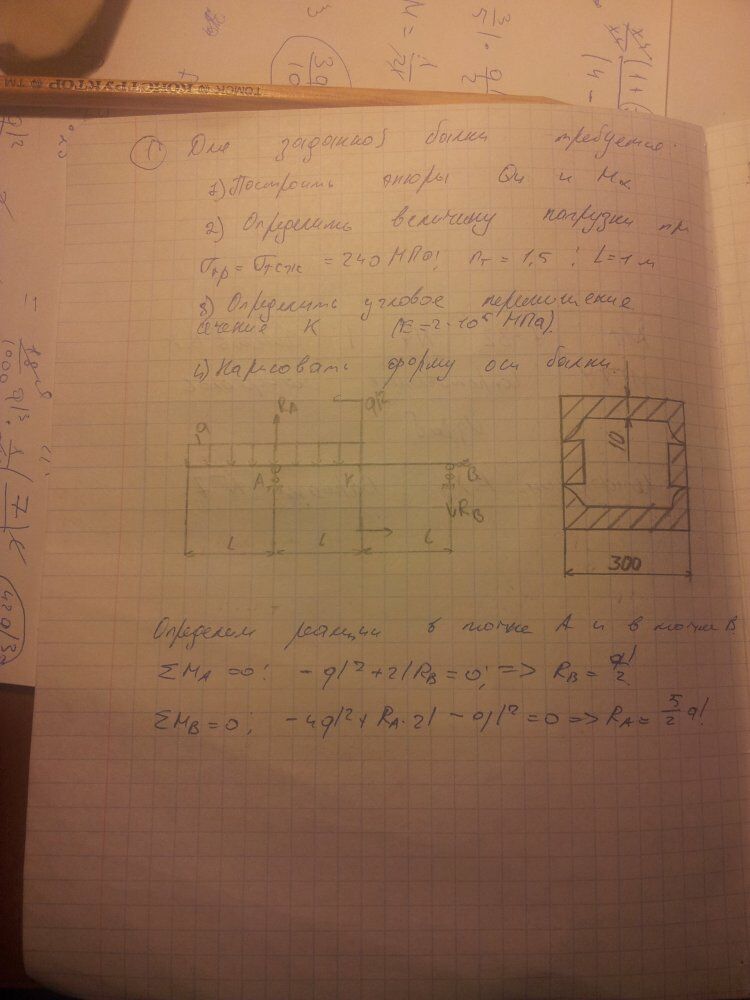 ТОМСК КОНСТРУКТОР ТМ
39
10
① Для заданной балки требуется:
1) Построить эпюры Qy и Mx
2) Определить величину нагрузки
σтр = σтсж = 240 МПа; nт = 1,5; l = 1 м
3) Определить угловое перемещение
сечение K (E = 2·10⁵ МПа).
4) Нарисовать форму оси балки.
q
RA
ql²
A
B
RB
l
l
l
10
300
Определим реакции в точке A и в точке B
ΣMA = 0: -ql² + 2lRB = 0; => RB = ql/2
ΣMB = 0; -4ql² + RA·2l - ql² = 0 => RA = 5/2 ql